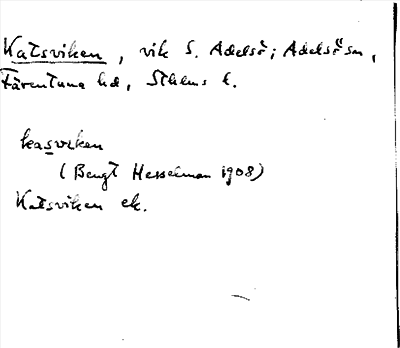 Katsviken, vik S. Adelsö; Adelsö sn,
Färentuna hd, Sthlms l.
kasviken
(Bengt Hesselman 1908)
Katsviken ek.